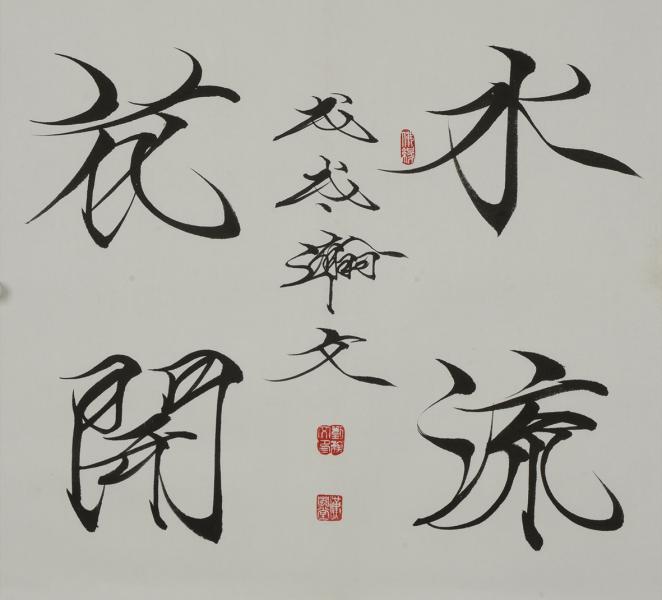 水流
花開
戊戌瀚文